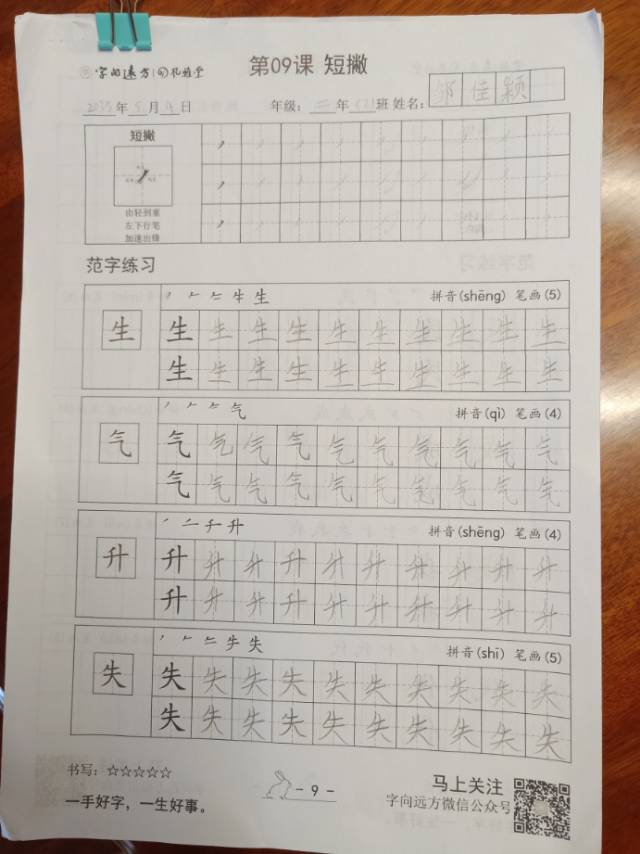 字向远方
第09课 短撇
年 月 日 年级: 二 年 班 姓名: 邹佳颖
短撇
由轻到重
左下行笔
加速出锋
范字练习
生 拼音(shēng) 笔画(5)
生 生 生 生 生 生 生 生 生 生 生
生 生 生 生 生 生 生 生 生 生
气 拼音(qì) 笔画(4)
气 气 气 气 气 气 气 气 气 气 气
气 气 气 气 气 气 气 气 气 气
升 拼音(shēng) 笔画(4)
升 升 升 升 升 升 升 升 升 升 升
升 升 升 升 升 升 升 升 升 升
失 拼音(shī) 笔画(5)
失 失 失 失 失 失 失 失 失 失 失
失 失 失 失 失 失 失 失 失 失
书写: ☆☆☆☆☆
一手好字，一生好事。
- 9 -
马上关注
字向远方微信公众号